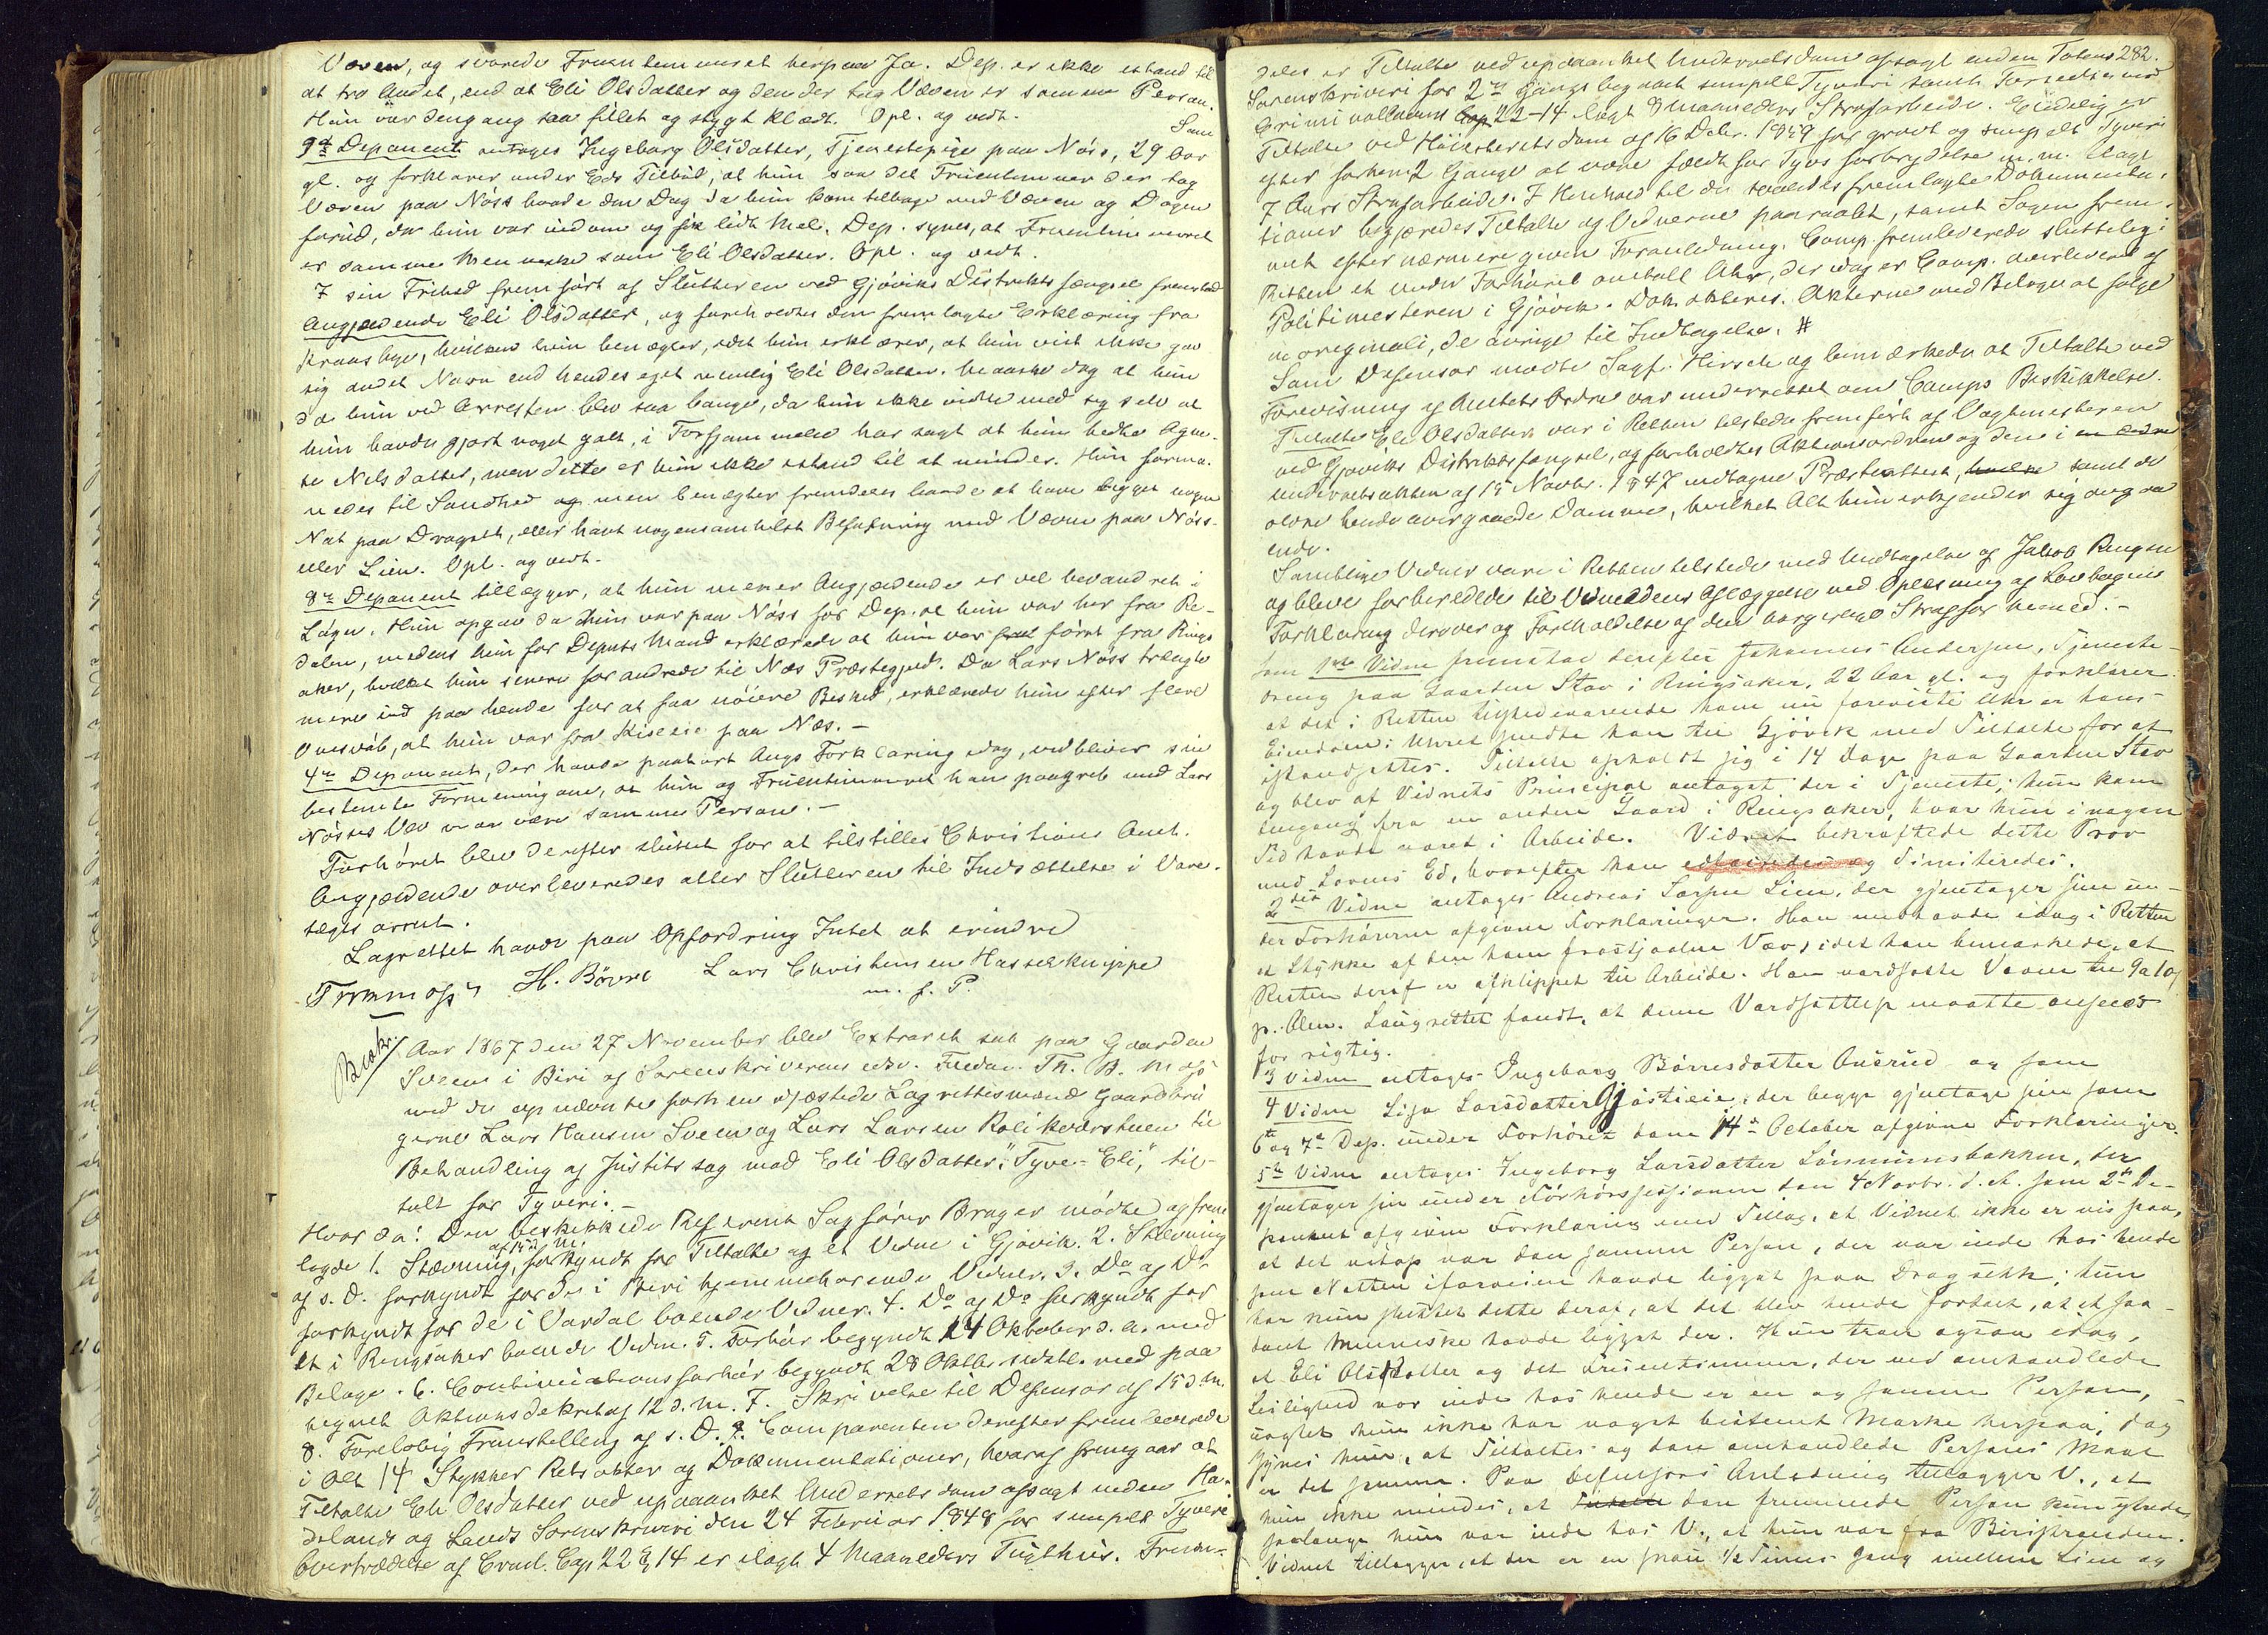 Væven, og svarede Fruentemmeret herpaa Ja. Dep. er ikke istand til
at tro Andet, end at Eli Olsdatter og den der tog Væven er samme Person.
Hun var dengang saa fillet og stygt klædt. Opl. og vedt.
Som
9de Deponent antages Ingeborg Olsdatter, Tjenestepige paa Nöss, 29 Aar
gl. og forklarer under Eds Tilbud, at hun saa det Fruentemmer der tog
Væven paa Nöss baade den Dag da hun kom tilbage med Væven og Dagen
forud, da hun var indom og fik lidt Mel. Dep. synes, at Fruentimmeret
er samme Menneske som Eli Olsdatter. Opl. og vedt.
I sin Frihed fremført af Slutteren ved Gjöviks Distriktsfængsel fremstod
Angjældende Eli Olsdatter, og foreholdtes den fremlagte Erklæring fra
Kraasbye, hvilken hun benægter, idet hun erklærer, at hun vist ikke gav
sig andet Navn end hendes eget nemlig Eli Olsdatter. Maaske dog at hun
da hun ved Arresten blev saa bange, da hun ikke vidste med sig selv at
hun havde gjort noget galt, i Forfjammelse har sagt at hun hedte Agne-
te Nilsdatter, men dette er hun ikke istand til at mindes. Hun forma-
nedes til Sandhed og men benægter fremdeles baade at have ligget nogen
Nat paa Dragsth, eller havt nogensomhelst Befatning med Væven paa Nöss
eller Lien. Opl. og vedt.
8de Deponent tillægger, at hun mener Angjældende er vel bevandret i
Løgn. Hun opgav da hun var paa Nöss for Dep. at hun var her fra Re-
dalen, medens hun for Deputs Mand erklærede at hun var født först fra Rings
aker, hvilket hun senere forandrede til Næs Præstegjeld. Da Lars Nöss trængte
mere ind paa hende for at faa nöiere Besked, erklærede hun efter flere
Omsvöb, at hun var fra Kiseeie paa Næs.-
4de Deponent, der havde paahört Angs Forklaring idag, vedbliver sin
bestemte Formening om, at hun og Fruentimmeret han paagreb med Lars
Nösses Væv maa være samme Person.-
Forhöret blev derefter sluttet for at tilstilles Christians Amt.
Angjældende overleveredes atter Slutteren til Indsættelse i Vare-
tægts arrest.
Lagrettet havde paa Opfordring Intet at erindre
H. Börre Lars Christensen Hasselknippe
m. f. P.
Beskr.
Aar 1867 den 27 November blev Extraret sat paa Gaarden
Sveen i Biri af Sorenskriverens edsv. Fuldm. Th. B. Mosö
med de opnævnte forhen edfæstede Lagrettesmænd Gaardbru
gerne Lars Hansen Sveen og Lars Larsen Rolikværstuen til
Behandling af Justitssag mod Eli Olsdatter, "Tyve-Eli", til-
talt for Tyveri.-
Hvorda: Den beskikkede Referent Sagförer Brager mödte og frem
lagde 1. Stævning, af 15 d. M. forkyndt for Tiltalte og et Vidne i Gjövik. 2. Stævning
af s. D. forkyndt for de i Biri hjemmehørende Vidner. 3. Do af Do
forkyndt for de i Vardal boende Vidner. 4. Do af Do forkyndt for
et i Ringsaker boende Vidne. 5. Forhör begyndt 14 Oktober d. A. med
Bilage. 6. Continuationsforhör begyndt 28 Oktbr sidstl. med paa
tegnet Aktionsdekret af 12 d. M. 7. Skrivelse til Defensor af 15 d. M.
8. Forelöbig Fremstilling af s. D. 9. Comparenten derefter fremleverede
i Alt 14 Stykker Retsakter og Dokumentationer, hvoraf fremgaar at
Tiltalte Eli Olsdatter ved upaaanket Underretsdom afsagt inden Ha-
delands og Lands Sorenskriveri den 24 Februar 1848 for simpelt Tyveri
Overtrædelse af Crml. Cap 22 § 14 er ilagt 4 Maaneders Tugthus. Frem-
282.
deles er Tiltalte ved upaaanket Underretsdom afsagt inden Totens
Sorenskriveri for 2den Gangs begaaet simpelt Tyveri samt Forseelse mod
Criminallovens Cap 22-14 ilagt 8 Maaneders Strafarbeide. Endelig er
Tiltalte ved Höiesteretsdom af 16 Debr. 1849 for grovt og simpelt Tyveri
efter forhen 2 Gange at være fældt for Tyvsforbrydelse m. m. ilagt
7 Aars Strafarbeide. I Henhold til de saaledes fremlagte Dokumenta-
tioner begjæredes Tiltalte og Vidnerne paaraabt, samt Sagen frem-
met efter nærmere given Foranledning. Comp. fremleverede sluttelig i
Retten et under Forhöret omtalt Uhr, der idag er Comp. overleveret af
Politimesteren i Gjövik. Dok. akteres. Akterne med Bilage at følge
in originali, de øvrige til Indtagelse. #
Som Defensor mødte Sagf. Hirsch og bemærkede at Tiltalte ved
Forevisning af Amtets Ordre var underrettet om Comps Beskikkelse.
Tiltalte Eli Olsdatter var i Retten tilstede fremfört af Vagtmesteren
ved Gjöviks Distriktsfængsel, og foreholdtes Aktionsordren og den i en ældre
underretsakten af 15 Novbr. 1847 indtagne Præsteattest, samt de
ovenn hende overgaaede Domme, hvilket Alt hun erkjender sig angaa
ende.
Samtlige Vidner vare i Retten tilstede med Undtagelse af Jakob Ringen
og bleve forberedede til Vidneedens Aflæggelse ved Oplæsning af Lovbogens
Forklaring derover og Foreholdelse af den borgerlige Straf for Mened.-
Som 1ste Vidne fremstod derefter Johannes Andersen, Tjeneste-
dreng paa Gaarden Stav i Ringsaker, 22 Aar gl. og forklarer
at det i Retten tilstedeværende ham nu foreviste Uhr er hans
Eiendom; Uhret sendte han til Gjövik med Tiltalte for at
istandsættes. Tiltalte opholdt sig i 14 Dage paa Gaarden Stav
og blev af Vidnets Principal antaget der i Tjeneste; hun kom
dengang fra en anden Gaard i Ringsaker, hvor hun i nogen
Tid havde været i Arbeide. Vidnet bekræftede dette Prov
med Lovens Ed, hvorefter han dimitteredes.
2det Vidne antages Andreas Larsen Lien, der gjentager sine un-
der Forhörerne afgivne Forklaringer. Han medhavde idag i Retten
et Stykke af den ham frastjaalne Væv, idet han bemærkede, at
Resten deraf er afklippet til Arbeide. Han værdsatte Væven til 9 a 10 s
p. Alen. Laugrettet fandt, at denne Værdsættelse maatte ansees
for rigtig.
3 Vidne antages Ingeborg Börresdatter Ousrud og som
4 Vidne Lisa Larsdatter Gjöstieie, der begge gjentage sin som
6te og 7de Dep. under Forhöret den 14de October afgivne Forklaringer.
5te Vidne antages Ingeborg Larsdatter Lönnumsbakken, der
gjentager sin under Forhörssessionen den 4 Novbr. d. A. som 2de De-
ponent afgivne Forklaring med Tillæg, at Vidnet ikke er vis paa,
at det netop var den samme Person, der var inde hos hende
som Natten iforveien havde ligget paa Dragsethh; hun
har kun sluttet dette deraf, at det blev hende fortalt, at et saa-
dant Menneske havde ligget der. Hun troer ogsaa idag,
at Eli Olsdatter og det Fruentimmer, der ved omhandlede
Leilighed var inde hos hende er en og samme Person,
uagtet hun ikke har noget bestemt Mærke herpaa; dog
synes hun, at Tiltaltes og den omhandlede Persons Maal
er det samme. Paa Defensors Anledning tillægger V., at
hun ikke mindes, at den fremmede Person kun ytrede,
saalænge hun var inde hos V., at hun var fra Biristranden.
Vidnet tillægger, at der er en snau 1/2 Times Gang mellem Lien og